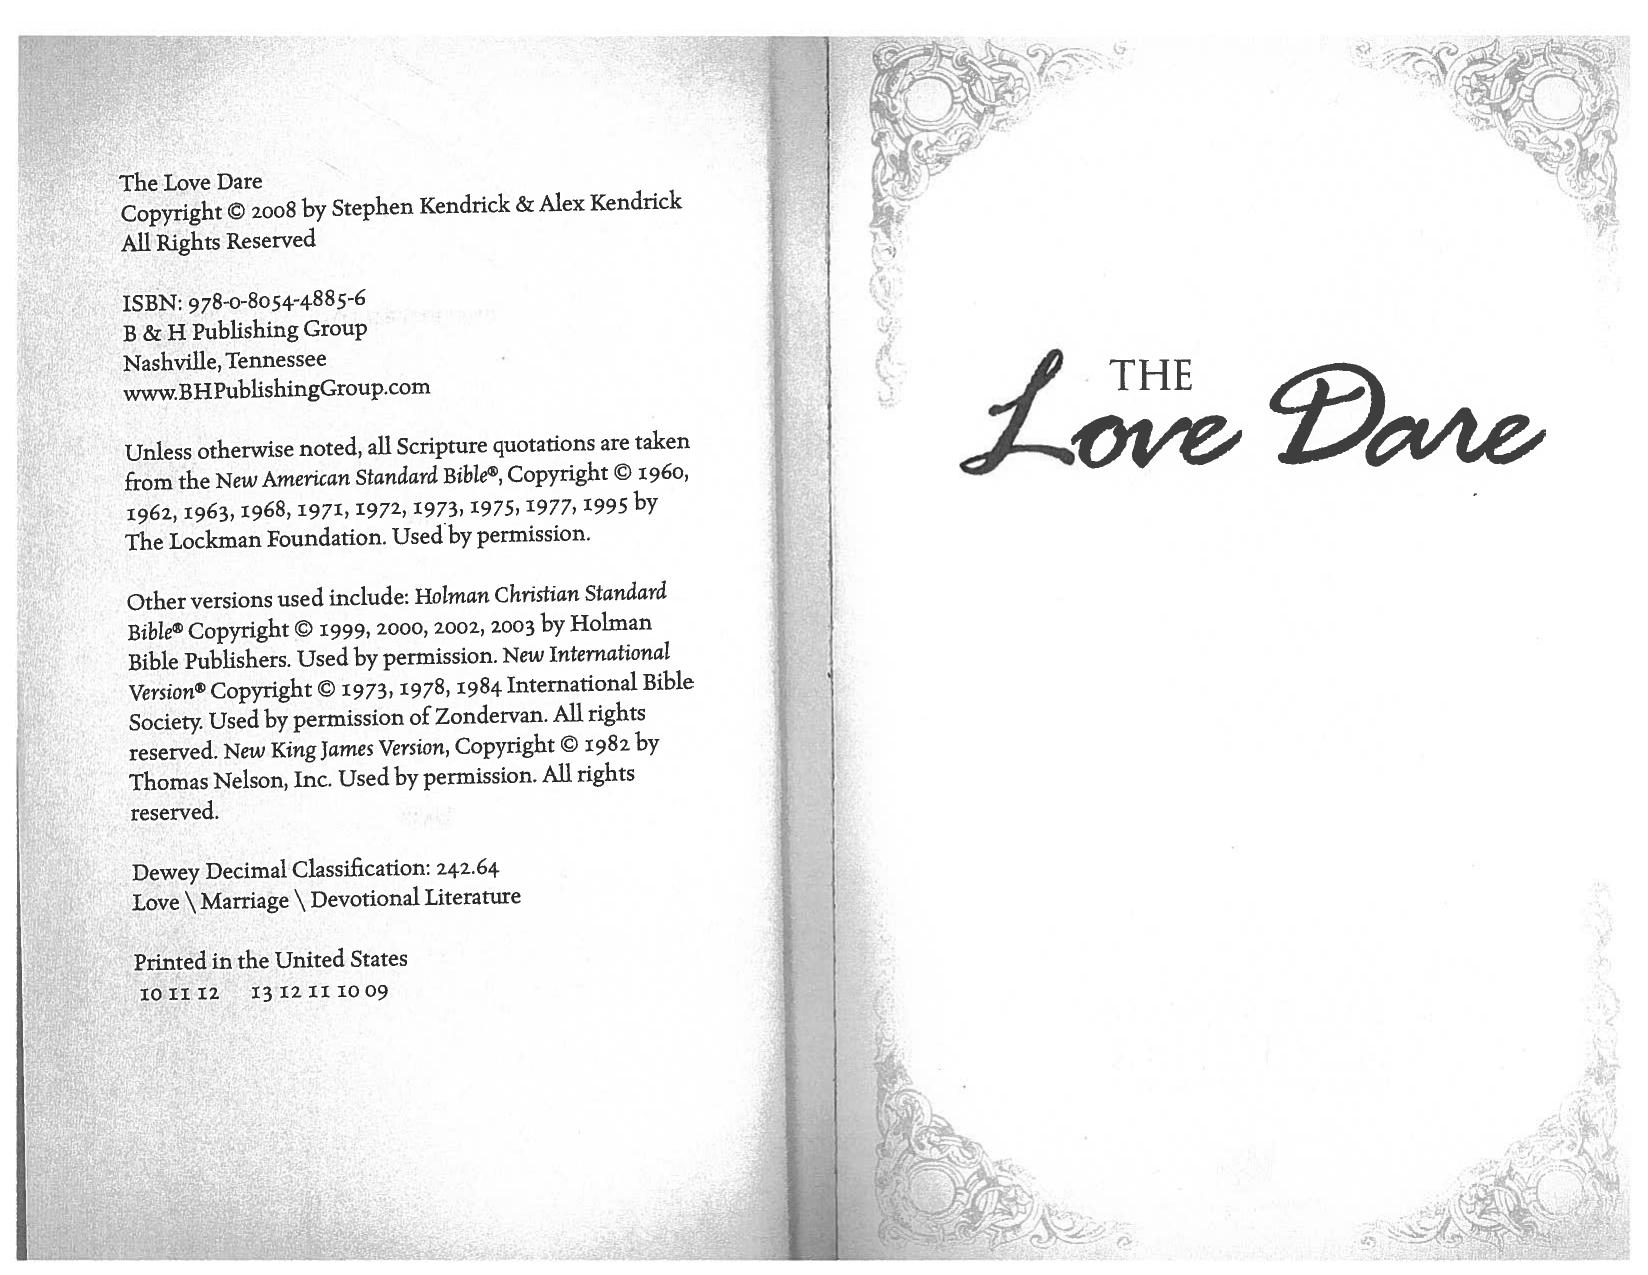 The Love Dare
Copyright © 2008 by Stephen Kendrick & Alex Kendrick
All Rights Reserved
ISBN: 978-0-8054-4885-6
B & H Publishing Group
Nashville, Tennessee
www.BHPublishingGroup.com
Unless otherwise noted, all Scripture quotations are taken
from the New American Standard Bible®, Copyright © 1960,
1962, 1963, 1968, 1971, 1972, 1973, 1975, 1977, 1995 by
The Lockman Foundation. Used by permission.
Other versions used include: Holman Christian Standard
Bible® Copyright © 1999, 2000, 2002, 2003 by Holman
Bible Publishers. Used by permission. New International
Version® Copyright © 1973, 1978, 1984 International Bible
Society. Used by permission of Zondervan. All rights
reserved. New King James Version, Copyright © 1982 by
Thomas Nelson, Inc. Used by permission. All rights
reserved.
Dewey Decimal Classification: 242.64
Love \ Marriage \ Devotional Literature
Printed in the United States
10 11 12 13 12 11 10 09
THE
Love Dare